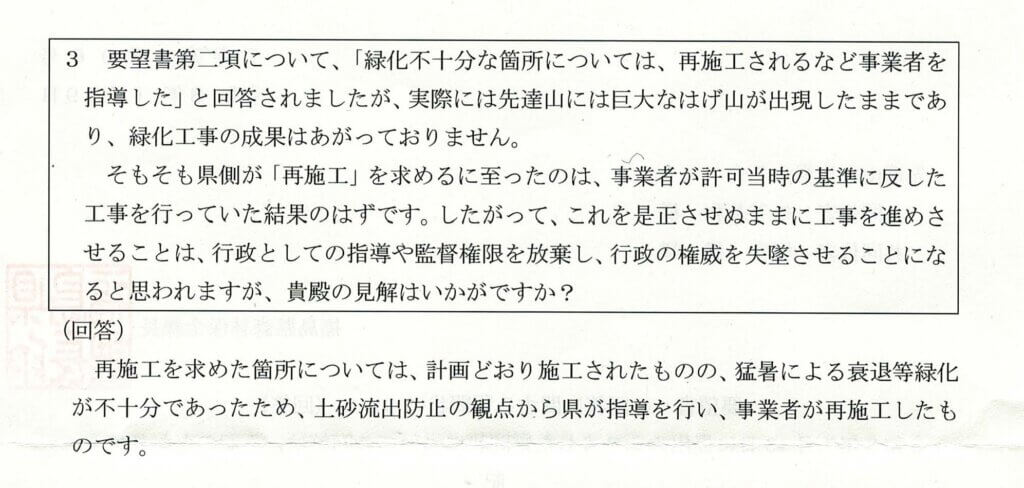 3　要望書第二項について、「緑化不十分な箇所については、再施工されるなど事業者を
指導した」と回答されましたが、実際には先達山には巨大なはげ山が出現したままであ
り、緑化工事の成果はあがっておりません。
そもそも県側が「再施工」を求めるに至ったのは、事業者が許可当時の基準に反した
工事を行っていた結果のはずです。したがって、これを是正させぬままに工事を進めさ
せることは、行政としての指導や監督権限を放棄し、行政の権威を失墜させることにな
ると思われますが、貴殿の見解はいかがですか？
（回答）
再施工を求めた箇所については、計画どおり施工されたものの、猛暑による衰退等緑化
が不十分であったため、土砂流出防止の観点から県が指導を行い、事業者が再施工したも
のです。